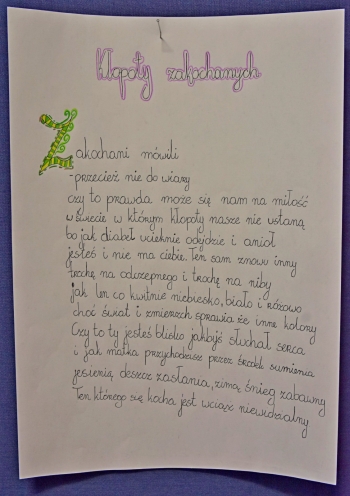 Kłopoty zakochanych
Zakochani mówili
-przecież nie do wiary
czy to prawda może się nam na miłość
w świecie w którym kłopoty nasze nie ustaną
bo jak diabeł ucieknie odejdzie i anioł
jesteś i nie ma ciebie. Ten sam znowu inny
trochę na odczepnego i trochę na niby
jak ten co kwitnie niebiesko, biało i różowo
choć świat i zmierzch sprawia że inne kolory
Czy to ty jesteś blisko jakbyś słuchał serca
i jak matka przychodzisz przez środek sumienia
jesienią deszcz zasłania, zimą śnieg zabawny
Ten którego się kocha jest wciąż niewidzialny